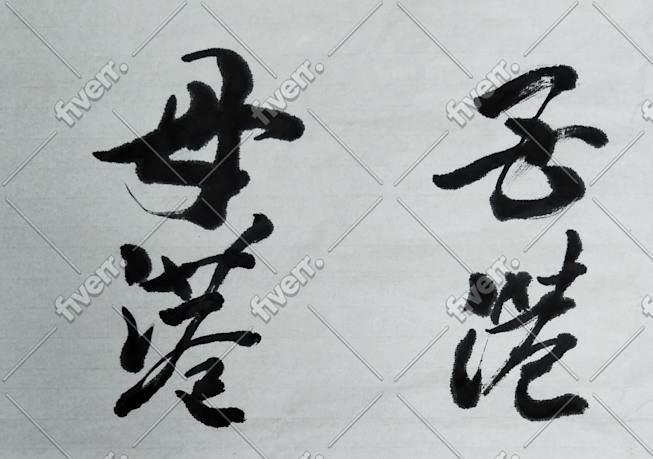 fiverr. fiverr. fiverr.
母港
港
fiverr. fiverr. fiverr.